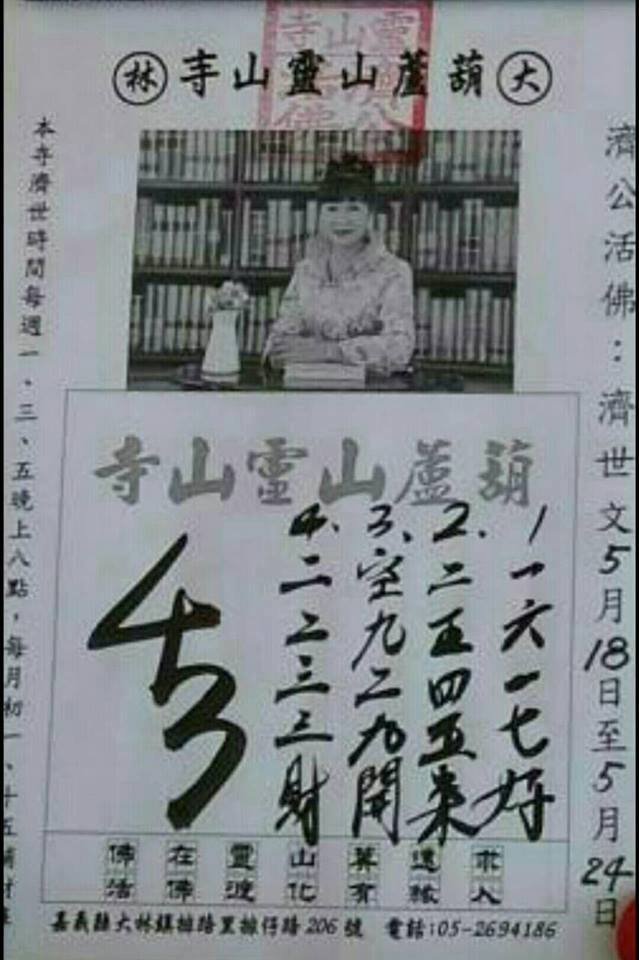 大葫蘆山靈山寺林
靈山寺
濟公活佛：濟世文5月18日至5月24日
葫蘆山靈山寺
1 一六一七好
2.二五四五來
3、空九二九開
4、二二三三財
佛在靈山莫遠求
活佛渡化有緣人
本寺濟世時間每週一、三、五晚上八點，每月初一、十五補財庫
嘉義縣大林鎮排路里排仔路206號 電話:05-2694186